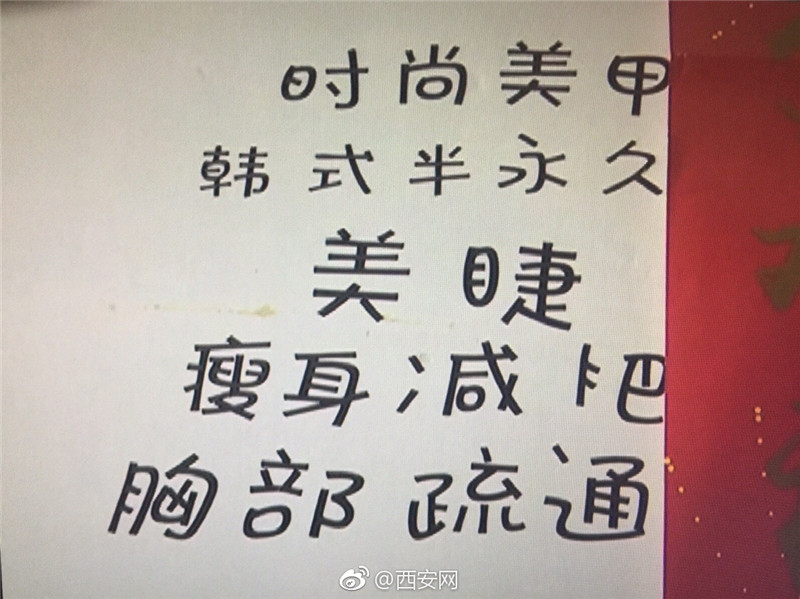 时尚美甲
韩式半永久
美睫
瘦身减肥
胸部疏通
@西安网